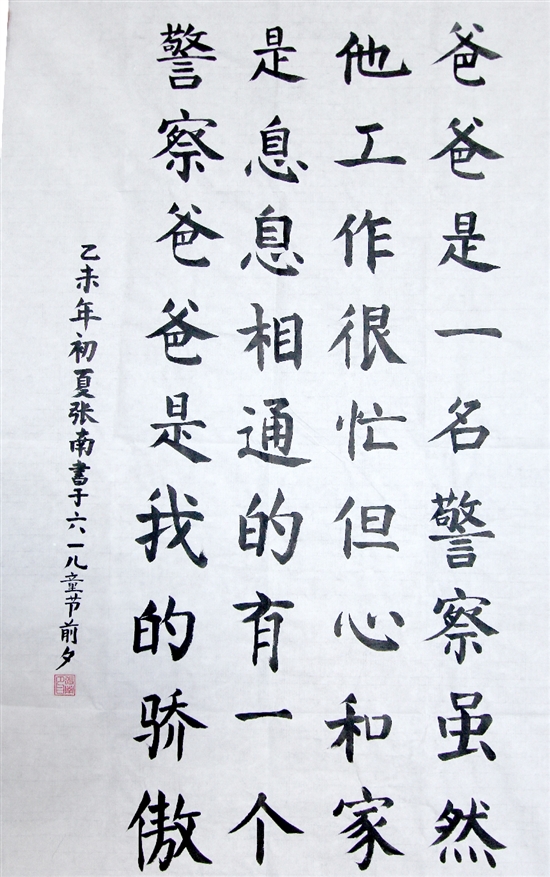 爸爸是一名警察虽然
他工作很忙但心和家
是息息相通的有一个
警察爸爸是我的骄傲
乙未年初夏张南书于六一儿童节前夕